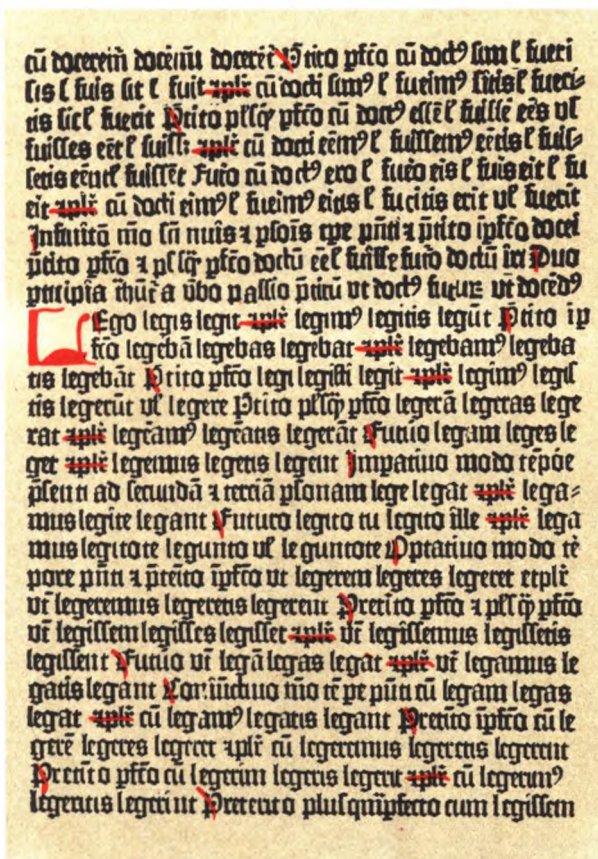 cū docerem̄ docēim̄ docerēt Ptito pfcō cū doctꝰ sim ł fueri
sis ł fuis sit ł fuit ⁊plr̄ cū docti simꝰ ł fueimꝰ sitis ł fueci-
tis sit ł fuerit Ptito plsꝙ pfcō cū doctꝰ essē ł fuissē eēs vł
fuisses eēt ł fuiss; ⁊plr̄ cū docti eēmꝰ ł fuissemꝰ eētis ł fuis-
setis eēnt ł fuissēt Futō cū doctꝰ ero ł fuēo eis ł fuis eit ł fu
eit ⁊plr̄ cū docti eimꝰ ł fueimꝰ eitis ł fucitis erit vł fuerit
Infinitō mō sn̄ nuīs ⁊ psōis tpe pn̄ti ⁊ p̄tito ip̄fcō docēi
p̄tito pfcō ⁊ plsꝙ pfcō doctū eē ł fuisse futō doctū iri Duo
pticipia thūt a v̄bo passio p̄titū vt doctꝰ futuꝝ vt docēdꝰ
LEgo legis legit ⁊plr̄ legimꝰ legitis legūt Ptito ip
fcō legebā legebas legebat ⁊plr̄ legebamꝰ legeba
tis legebāt Ptito pfcō legi legisti legit ⁊plr̄ legimꝰ legis
tis legerūt vł legere Ptito plsꝙ pfcō legerā legeras lege
rat ⁊plr̄ legeāmꝰ legeātis legerāt Futuō legam leges le
get ⁊plr̄ legemus legetis legent Impatiuo modo tēpōe
p̄senti ad secundā ⁊ terciā psonam lege legat ⁊plr̄ lega-
mus legite legant Futuro legito tu legito ille ⁊plr̄ lega
mus legitote legunto vł leguntote Optatiuo modo tē
pore pn̄ti ⁊ p̄teīto ip̄fcō vt legerem legeres legeret etplr̄
vt̄ legeremus legeretis legerent Preteīto pfcō ⁊ plsꝙ pfcō
vt̄ legissem legisses legisset ⁊plr̄ vt̄ legissemus legissetis
legissent Futuō vt̄ legā legas legat ⁊plr̄ vt̄ legamus le
gatis legant Coniūctiuo mō tē pe pn̄ti cū legam legas
legat ⁊plr̄ cū legamꝰ legatis legant Pretīto ip̄fcō cū le
gerē legeres legeret ⁊plr̄ cū legeremus legeretis legerent
Preteīto pfcō cū legerim legeris legerit ⁊plr̄ cū legerimꝰ
legeritis legerint Preterito plusquīpfecto cum legissem